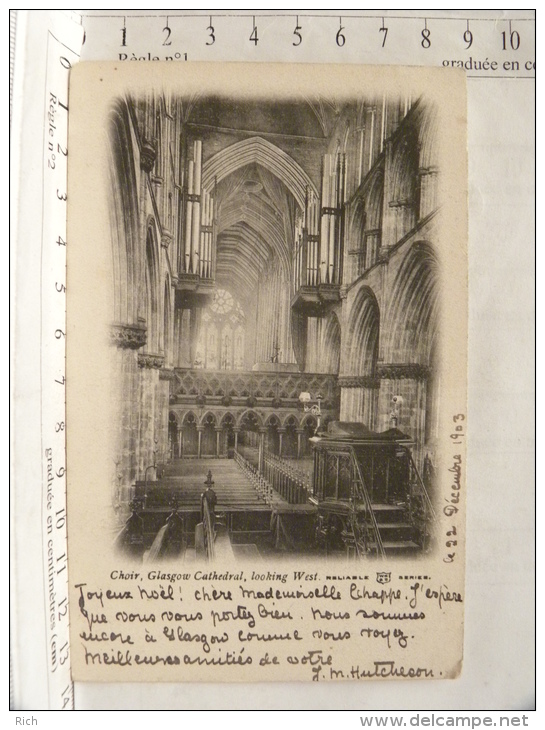 1 2 3 4 5 6 7 8 9 10
Règle n°1
graduée en ce
0 1 2 3 4 5 6 7 8 9 10 11 12 13 14
Règle n°2
graduée en centimètres (cm)
Choir, Glasgow Cathedral, looking West. RELIABLE SERIES.
Joyeux Noël! chère Mademoiselle Chappe. J'espère
que vous vous portez bien. Nous sommes
encore à Glasgow comme vous voyez.
Meilleures amitiés de votre
J. M. Hutcheson.
le 22 Décembre 1903
Rich
http://www.delcampe.net